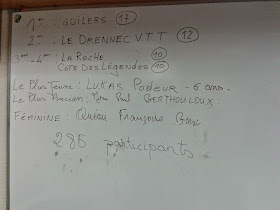 1er : GUILERS (17)
2em : LE DRENNEC V.T.T (12)
3em - 4em : LA ROCHE (10)
COTE DES LÉGENDES (10)
Le Plus Jeune : LUKAS Padeur - 6 ans -
Le Plus Ancien : Paul BERTHOULOUX
FÉMININE : Françoise
286 participants